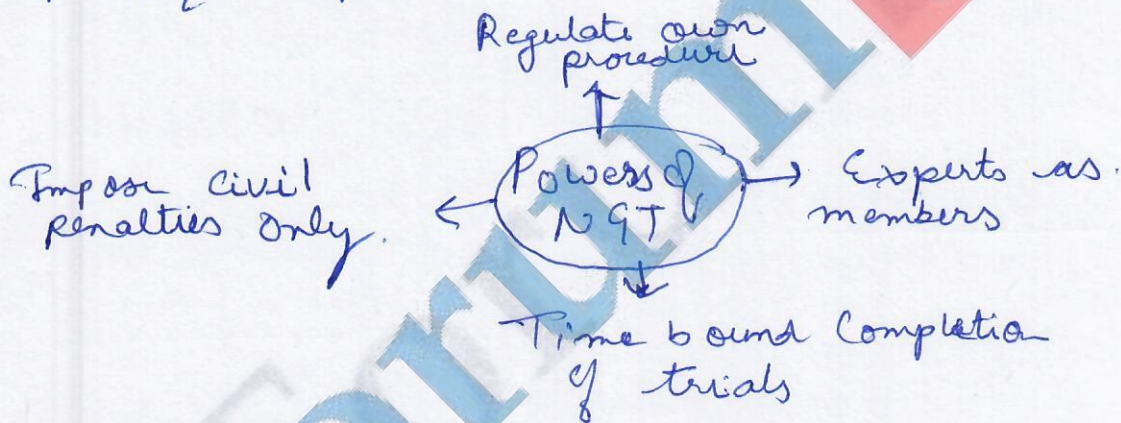 Regulate own
procedure
Impose civil
penalties only.
Powers of
NGT
Experts as
members
Time bound Completion
of trials